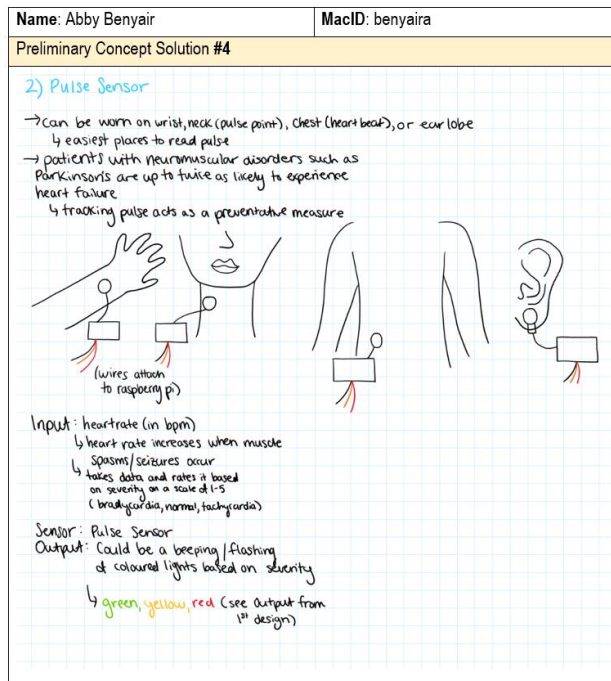 Name: Abby Benyair
MacID: benyaira
Preliminary Concept Solution #4
2) Pulse Sensor
→ can be worn on wrist, neck (pulse point), chest (heart beat), or ear lobe
↳ easiest places to read pulse
→ patients with neuromuscular disorders such as
Parkinson's are up to twice as likely to experience
heart failure
↳ tracking pulse acts as a preventative measure
(wires attach
to raspberry pi)
Input: heartrate (in bpm)
↳ heart rate increases when muscle
spasms/seizures occur
↳ takes data and rates it based
on severity on a scale of 1-5
(bradycardia, normal, tachycardia)
Sensor: Pulse Sensor
Output: Could be a beeping/flashing
of coloured lights based on severity
↳ green, yellow, red (see output from
1st design)